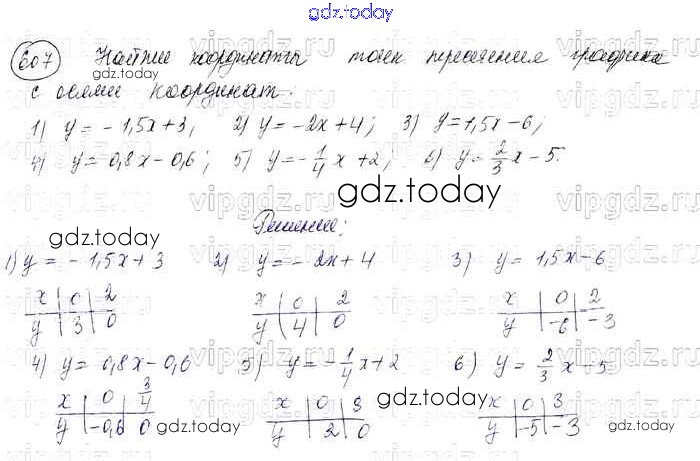 gdz.today
607 Найти координаты точек пересечения графика
gdz.today
с осями координат:
1) y = -1,5x+3, 2) y = -2x+4; 3) y = 1,5x-6;
4) y = 0,8x-0,6; 5) y = -1/4 x+2; 6) y = 2/3 x-5.
gdz.today
Решение:
gdz.today
1) y = -1,5x+3 2) y = -2x+4 3) y = 1,5x-6
x | 0 | 2 x | 0 | 2 x | 0 | 2
y | 3 | 0 y | 4 | 0 y | -6 | -3
4) y = 0,8x-0,6 5) y = -1/4 x+2 6) y = 2/3 x-5
x | 0 | 3/4 x | 0 | 8 x | 0 | 3
y | -0,6 | 0 y | 2 | 0 y | -5 | -3
gdz.today
gdz.today
gdz.today
vipgdz.ru